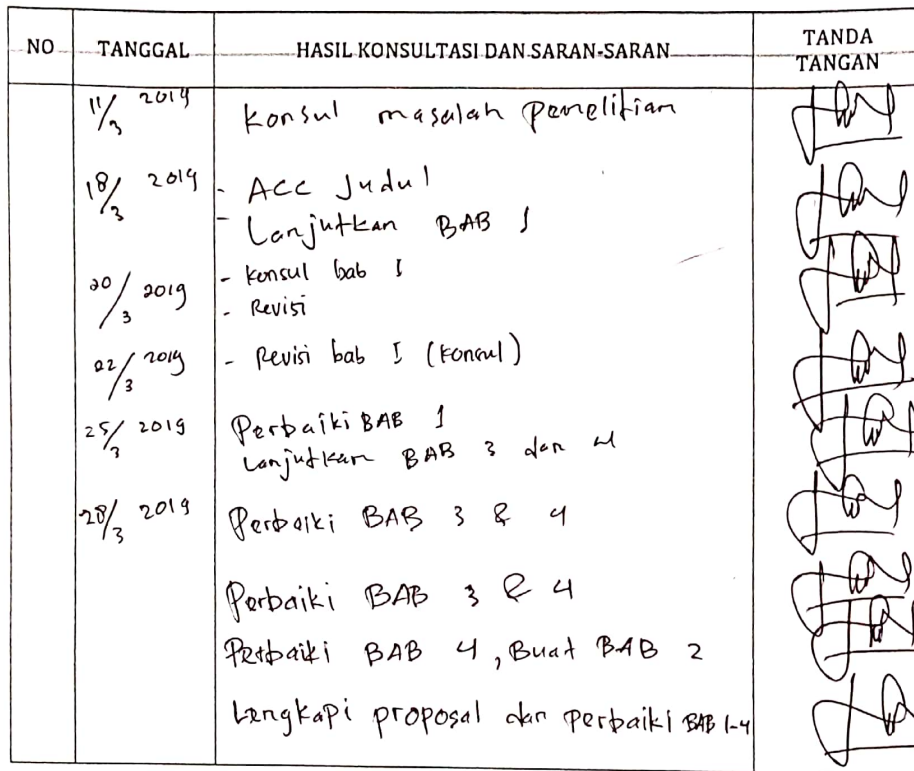 NO TANGGAL HASIL KONSULTASI DAN SARAN-SARAN TANDA TANGAN
11/3 2019 Konsul masalah penelitian
18/3 2019 - ACC Judul
- Lanjutkan BAB 1
20/3 2019 - Konsul bab I
- Revisi
22/3 2019 - Revisi bab I (konsul)
25/3 2019 Perbaiki BAB 1
Lanjutkan BAB 3 dan 4
28/3 2019 Perbaiki BAB 3 & 4
Perbaiki BAB 3 & 4
Perbaiki BAB 4, Buat BAB 2
Lengkapi proposal dan perbaiki BAB 1-4